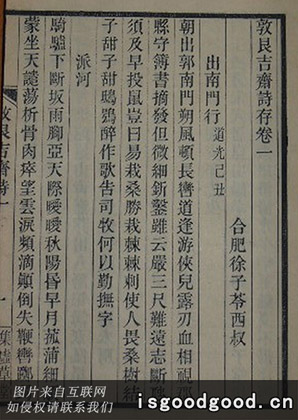 敦艮吉齋詩存卷一
合肥徐子苓西叔
出南門行 道光己丑
朝出郭南門朔風頓長轡道逢游俠兒露刃血相視
縣字簿書摘發但微細斬鑿雖云嚴三尺難遠志斷
須及早投鼠豈曰易栽桑勝栽棘棘刺使人畏桑樹結
子甜子甜鴟鴞醉作歌告司牧何以勤撫字
派河
騎驢下斷坂雨腳亞天際曖曖秋陽昏早月菰蒲細
蒙坐天譴蕩析骨肉瘁望雲淚頻滴顛倒失鞭轡
敦艮吉齋詩一
一
图片来自互联网
如侵权请联系我们
isgoodgood.cn